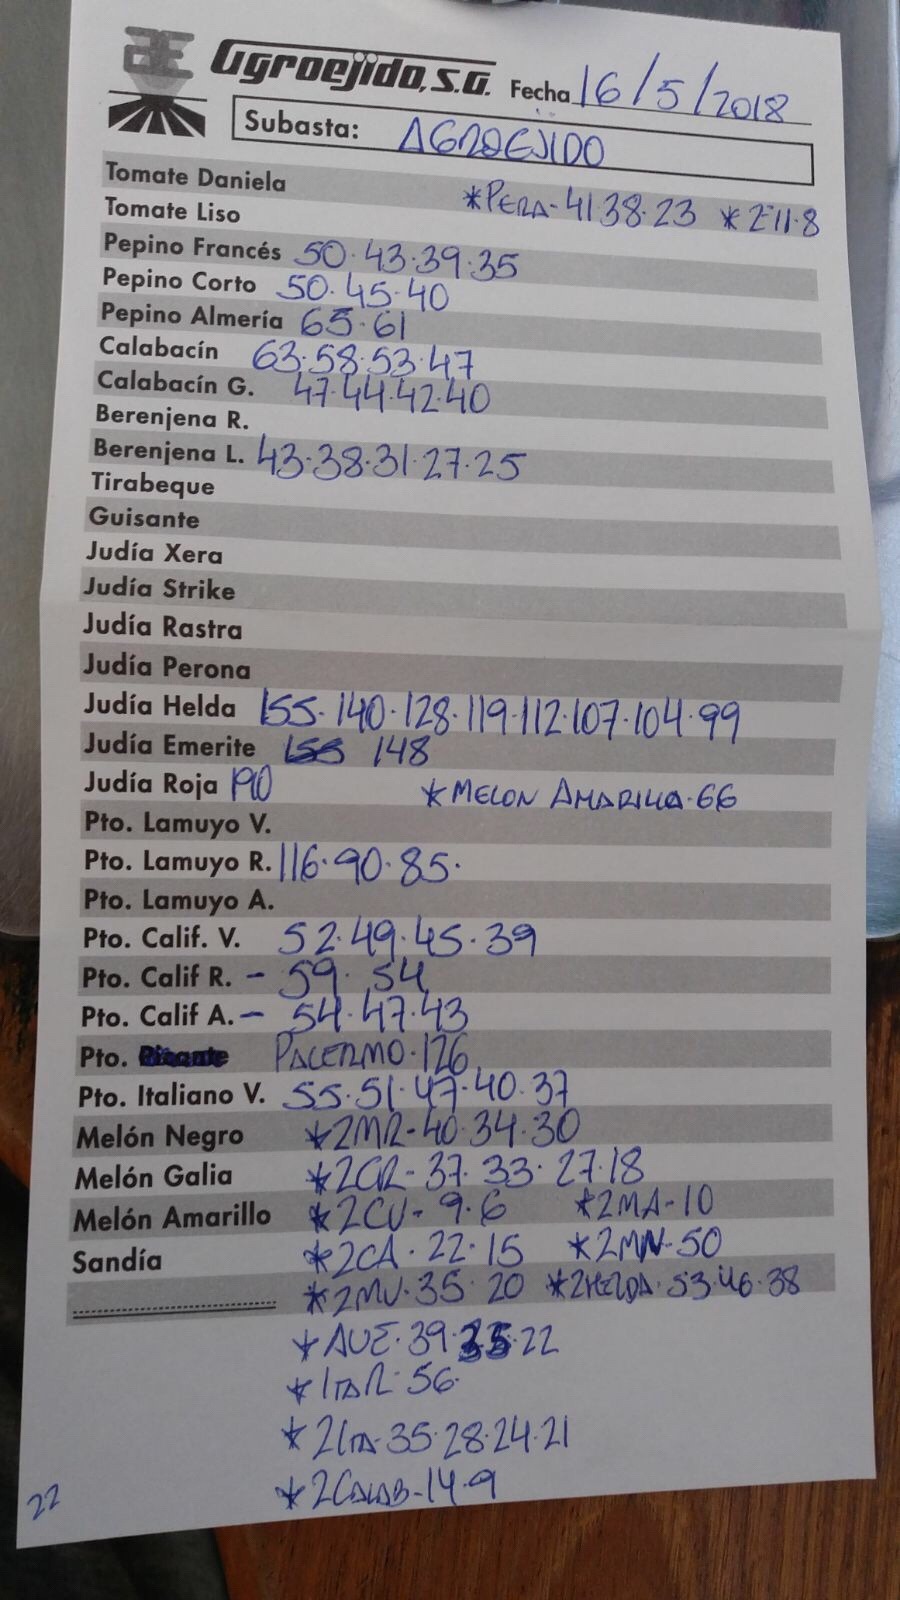 Agroejido, S.A. Fecha 16/5/2018
Subasta: AGROEJIDO
Tomate Daniela
*PERA-41·38·23 *2ª·11·8
Tomate Liso
Pepino Francés 50·43·39·35
Pepino Corto 50·45·40
Pepino Almería 65·61
Calabacín 63·58·53·47
Calabacín G. 47·44·42·40
Berenjena R.
Berenjena L. 43·38·31·27·25
Tirabeque
Guisante
Judía Xera
Judía Strike
Judía Rastra
Judía Perona
Judía Helda 155·140·128·119·112·107·104·99
Judía Emerite 155 148
Judía Roja 190 *MELON AMARILLO·66
Pto. Lamuyo V.
Pto. Lamuyo R. 116·90·85·
Pto. Lamuyo A.
Pto. Calif. V. 52·49·45·39
Pto. Calif R. - 59· 54
Pto. Calif A. - 54·47·43
Pto. Picante PALERMO·126
Pto. Italiano V. 55·51·47·40·37
Melón Negro *2MR-40·34·30
Melón Galia *2CR-37·33·27·18
Melón Amarillo *2CV-9·6 *2MA-10
Sandía *2CA·22·15 *2MN-50
*2MV·35·20 *2HELDA·53·46·38
*AVE·39·35·22
*ITAR·56·
*2ITA·35·28·24·21
*2CALAB-14·9
22